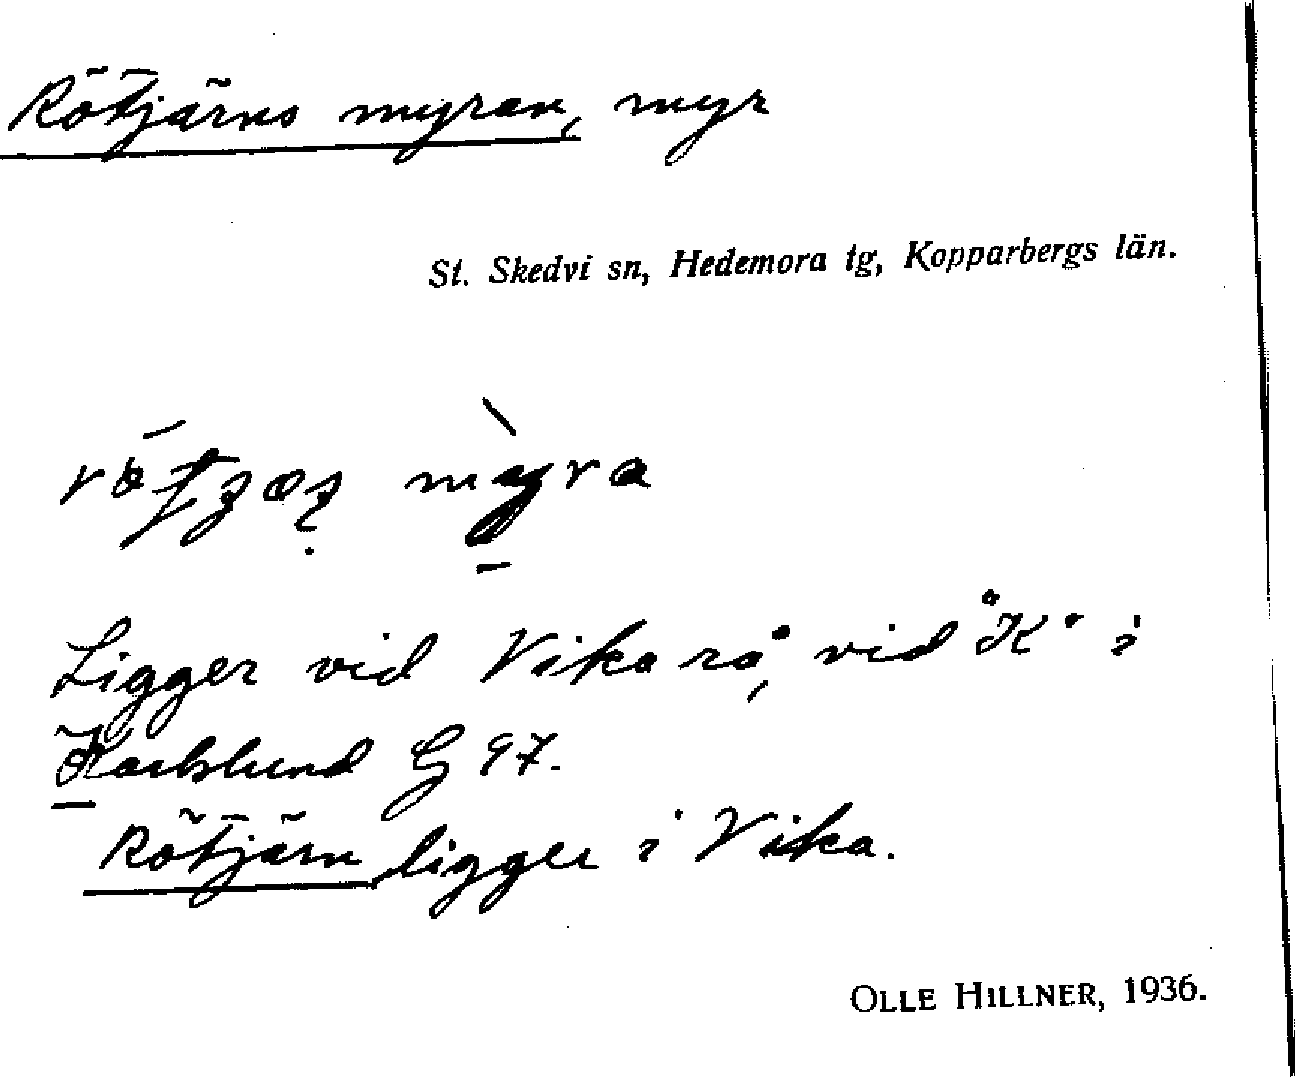 Rötjärns myran, myr
St. Skedvi sn, Hedemora tg, Kopparbergs län.
Ligger vid Vika rå, vid "K" i
Karlslund G 97.
Rötjärn ligger i Vika.
OLLE HILLNER, 1936.